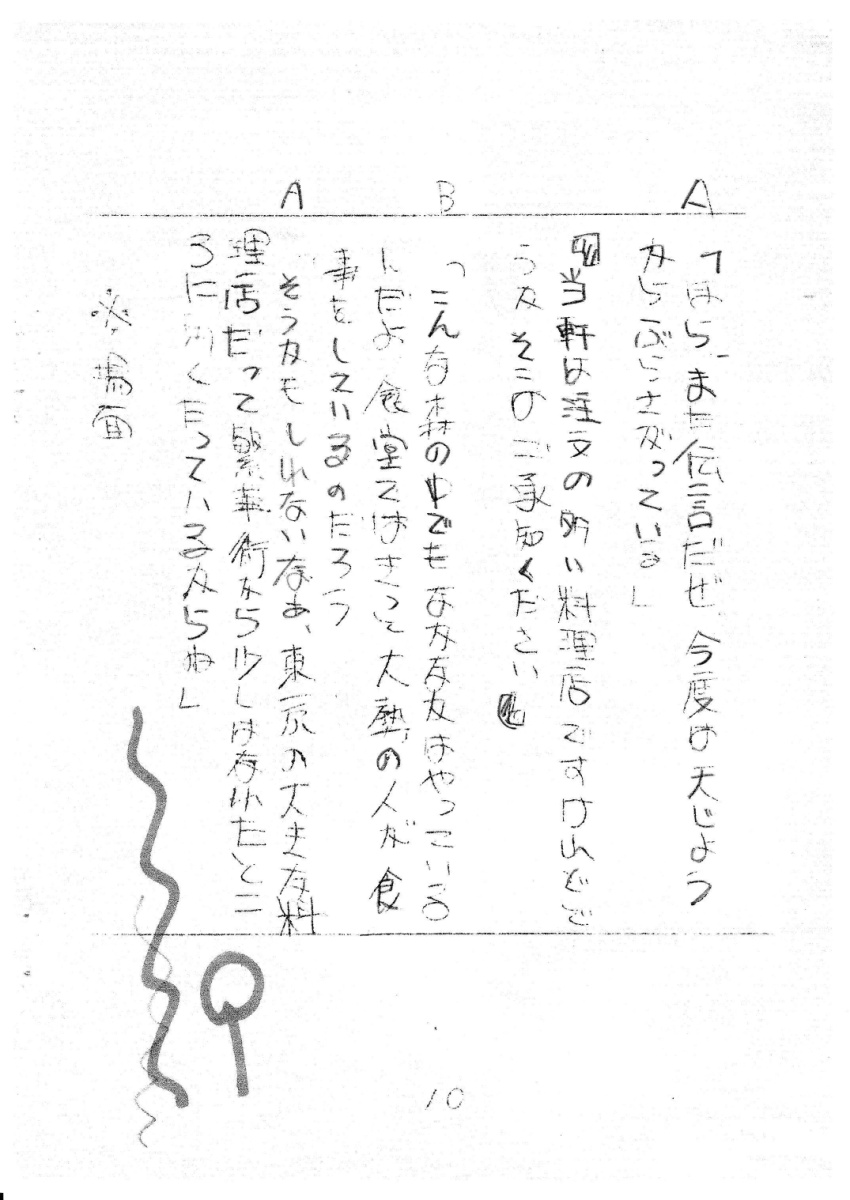 A
「ほら、また伝言だぜ、今度は天じょう
からぶらさがっている」
『当軒は注文の多い料理店ですけれどど
うかそこはご承知ください』
B
「こんな森の中でもなかなかはやっている
んだよ食堂ではきっと大勢の人が食
事をしているのだろう
A
そうかもしれないなあ、東京の大きな料
理店だって繁華街から少しはなれたとこ
ろに くたっているからね」
※場面
10